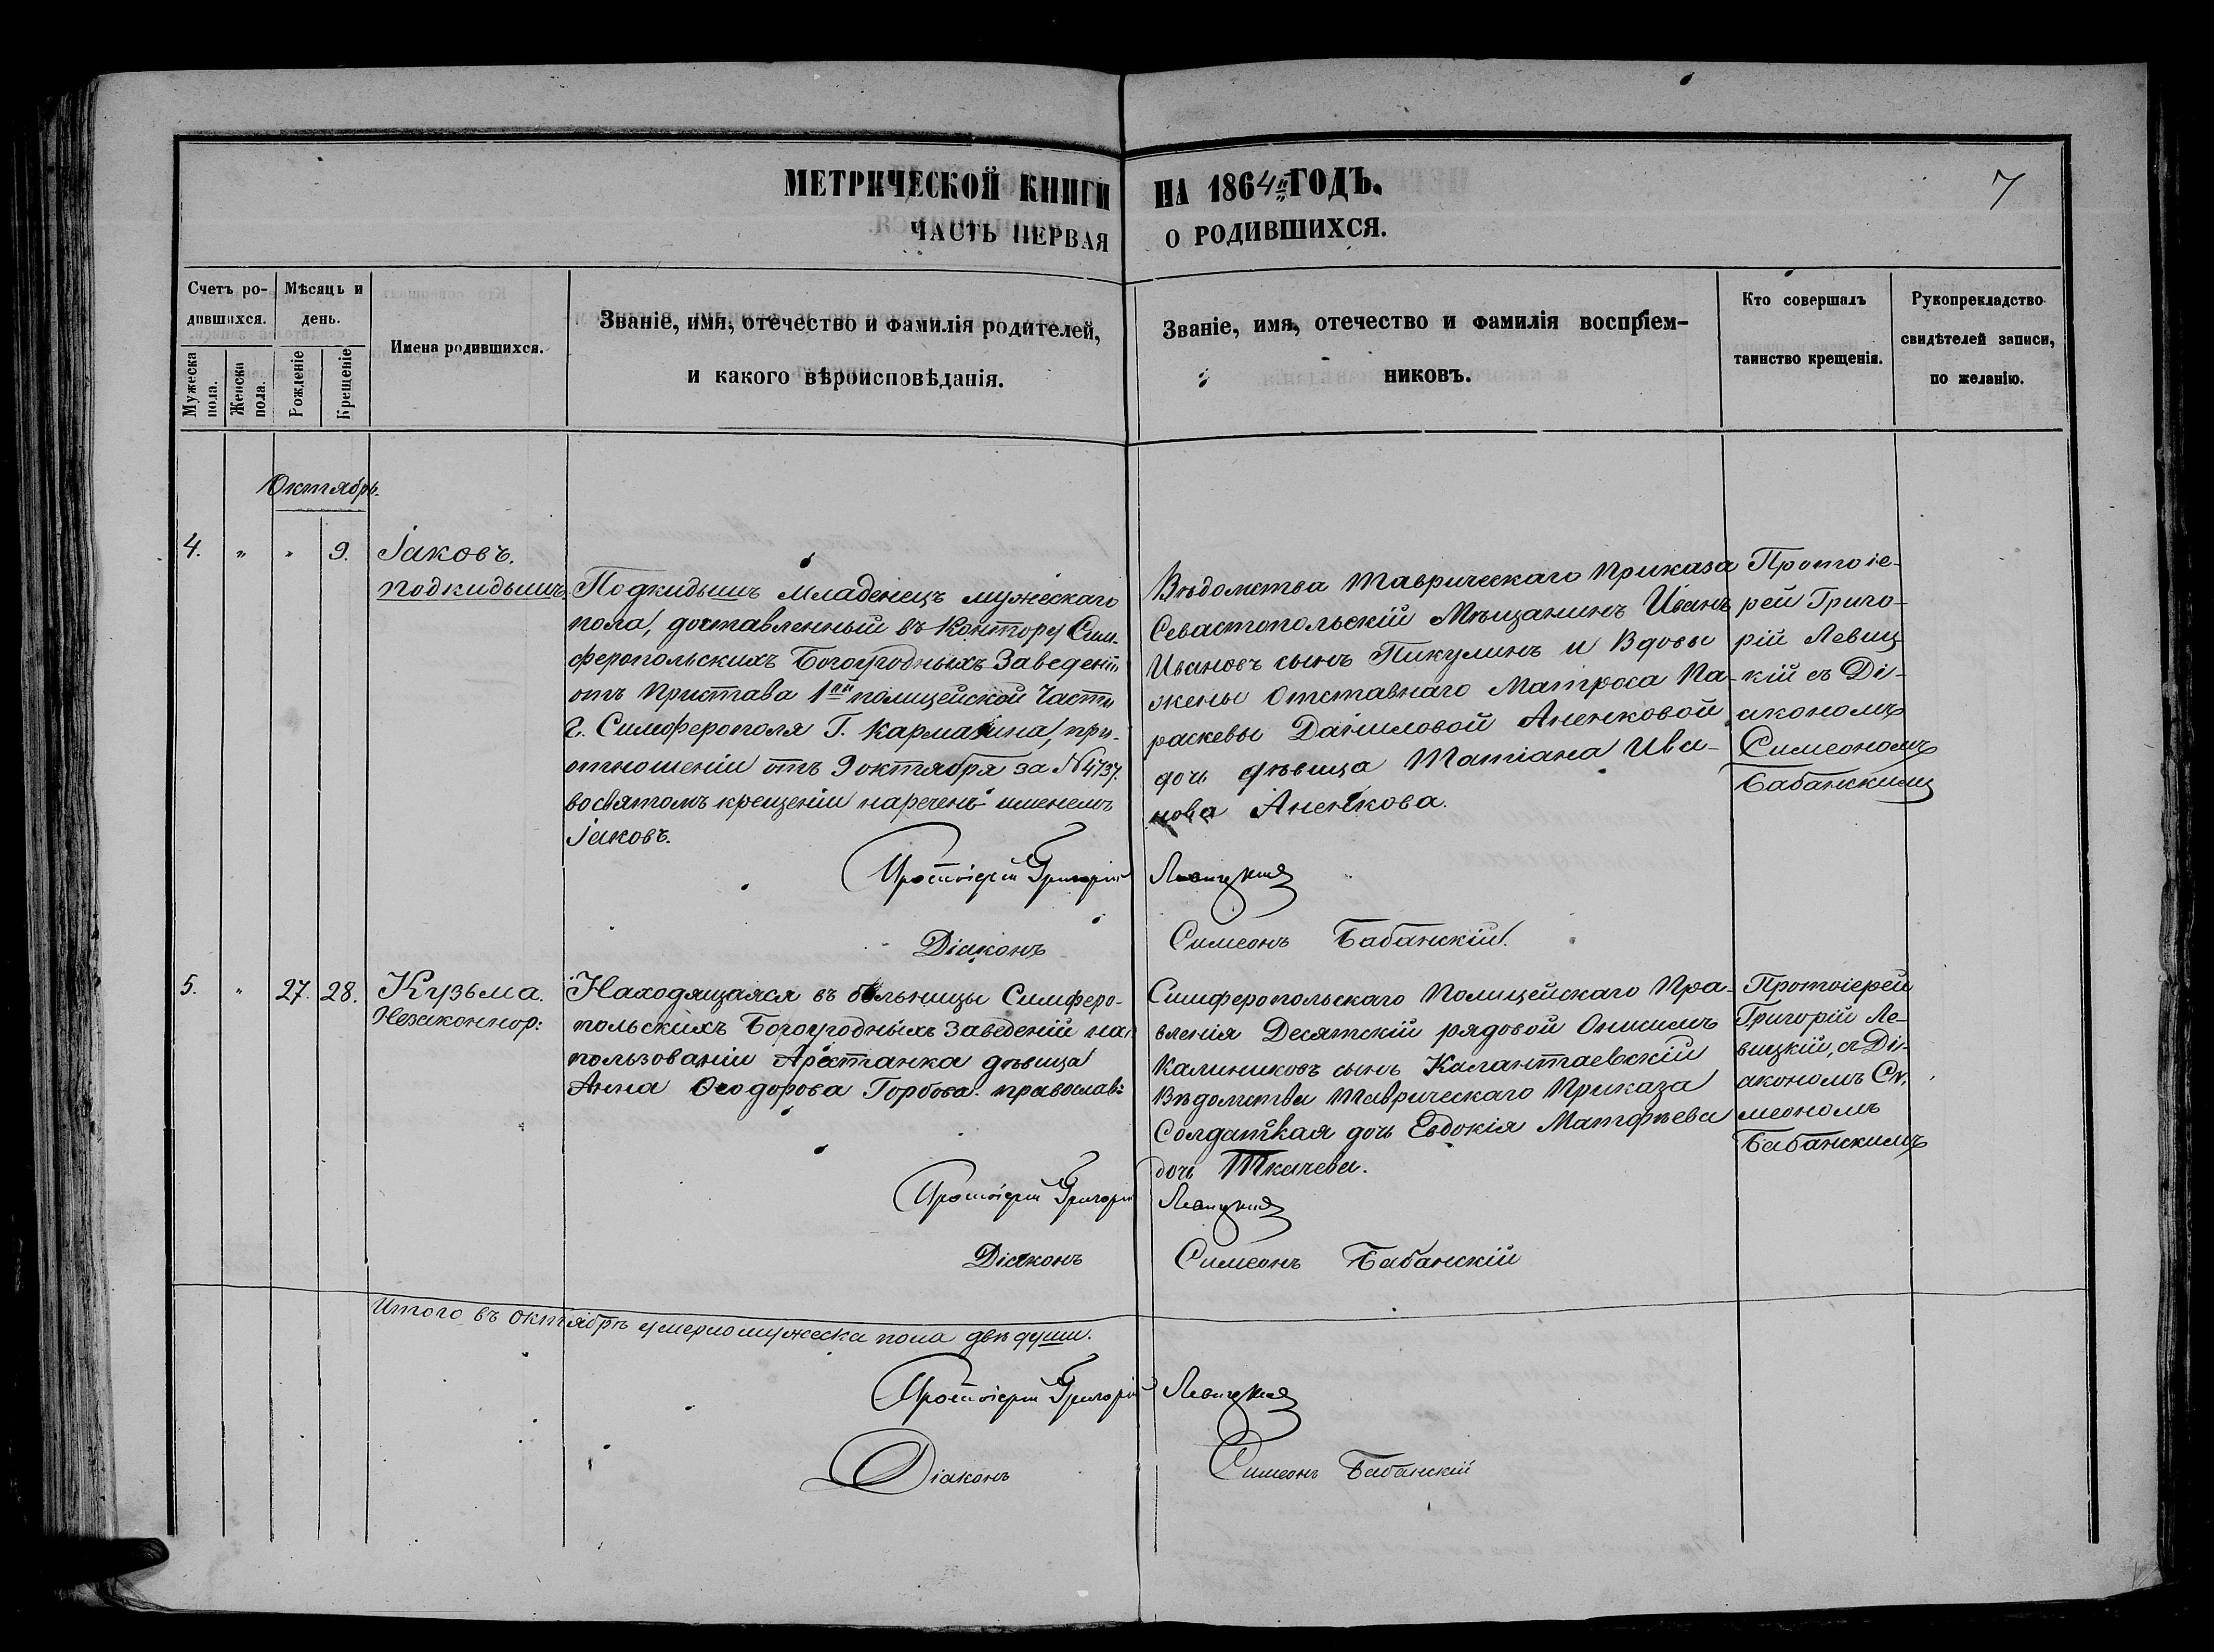 МЕТРИЧЕСКОЙ КНИГИ НА 1864й ГОДЪ.
7
ЧАСТЬ ПЕРВАЯ О РОДИВШИХСЯ.
Счетъ ро-
дившихся.
Мужеска
пола.
Женска
пола.
Мѣсяцъ и
день.
Рожденіе
Крещеніе
Имена родившихся.
Званіе, имя, отечество и фамилія родителей,
и какого вѣроисповѣданія.
Званіе, имя, отечество и фамилія воспріем-
никовъ.
Кто совершалъ
таинство крещенія.
Рукопрекладство
свидѣтелей записи,
по желанію.
Октябрь.
4. " " 9.
Іаковъ.
подкидышъ.
Подкидышъ младенецъ мужескаго
пола, доставленный въ контору Сим-
феропольскихъ Богоугодныхъ Заведеній
отъ Пристава 1й полицейской Части
Г. Симферополя Г. Кармазина, при
отношеніи отъ 9 октября за N 4737.
во святомъ крещеніи нареченъ именемъ
Іаковъ.
Вѣдомства Таврическаго Приказа
Севастопольскій Мѣщанинъ Иванъ
Ивановъ сынъ Пикулинъ и Вдовы
жены Отставнаго Матроса Па-
раскевы Даниловой Аненковой
дочь дѣвица Татіана Ива-
нова Аненкова.
Протоіе-
рей Григо-
рій Левиц
кій съ Ді-
акономъ
Симеономъ
Бабанскимъ
Протоіерей Григорій Левицкій
Діаконъ Симеонъ Бабанскій.
5. " 27. 28.
Кузьма.
Незаконнор:
Находящаяся въ больницы Симферо-
польскихъ Богоугодныхъ Заведеній на
пользованіи Арестанка дѣвица
Анна Ѳеодорова Горбова. православ:
Симферопольскаго Полицейскаго Пра-
вленія Десятскій рядовой Онисимъ
Калиниковъ сынъ Калантаевскій
Вѣдомства Таврическаго Приказа
Солдатская дочь Евдокія Матфѣева
дочь Ткачева.
Протоіерей
Григорій Ле-
вицкій, съ Ді-
акономъ Си-
меономъ
Бабанскимъ
Протоіерей Григорій Левицкій
Діаконъ Симеонъ Бабанскій
Итого въ Октябрѣ умерло мужеска пола двѣ души.
Протоіерей Григорій Левицкій
Діаконъ Симеонъ Бабанскій